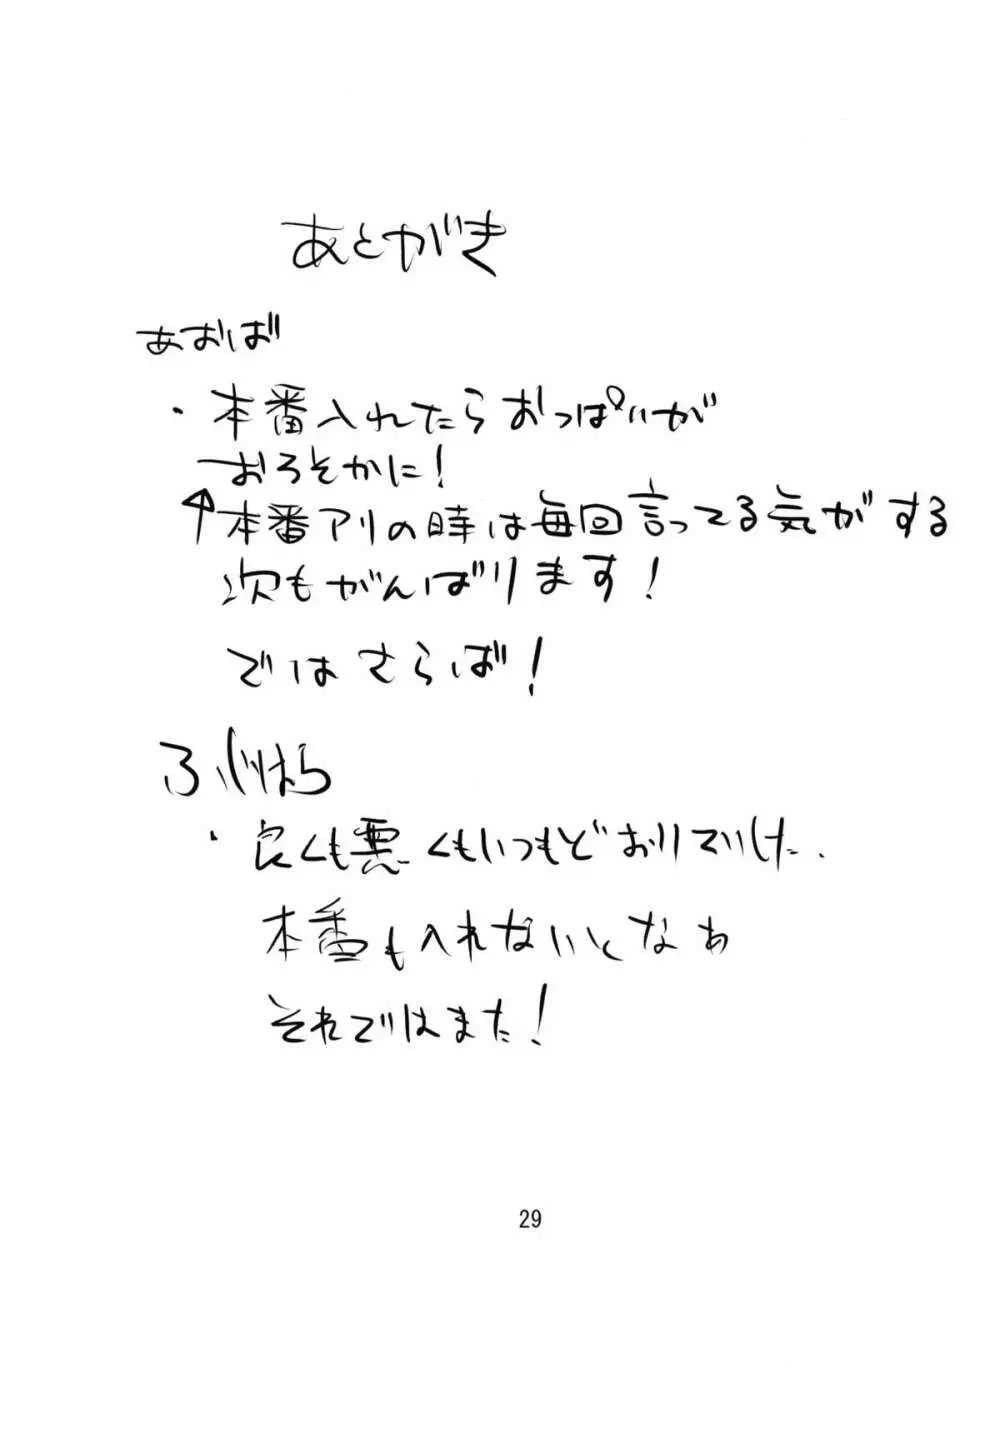 あとがき
あおば
・本番入れたらおっぱいが
おろそかに!
↑本番アリの時は毎回言ってる気がする
次もがんばります!
ではさらば!
ふじはら
・良くも悪くもいつもどおりでした.
本番も入れないとなぁ
それではまた!
29